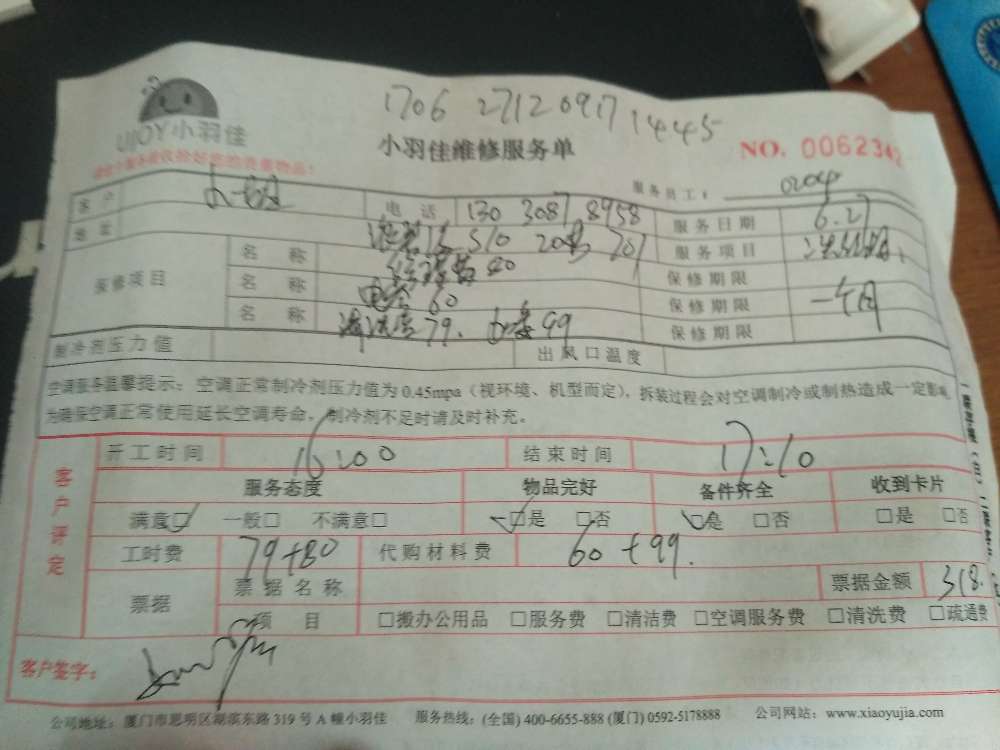 1706 27120917 1445
UJOY小羽佳
小羽佳维修服务单
NO. 0062342
服务员工：
客户 电话 130 3087 8958 服务日期 6.27
地址 510 701 服务项目
保修项目
名称 80 保修期限
名称 60 保修期限 一个月
名称 79. 99 保修期限
制冷剂压力值 出风口温度
空调服务温馨提示：空调正常制冷剂压力值为0.45mpa（视环境、机型而定），拆装过程会对空调制冷或制热造成一定影响
为确保空调正常使用延长空调寿命，制冷剂不足时请及时补充。
客户评定
开工时间 16:00 结束时间 17:10
服务态度 物品完好 备件齐全 收到卡片
满意□ 一般□ 不满意□ □是 □否 □是 □否 □是 □否
工时费 79+80 代购材料费 60+99.
票据 票据名称 票据金额 318.
项目 □搬办公用品 □服务费 □清洁费 □空调服务费 □清洗费 □疏通费
客户签字：
公司地址：厦门市思明区湖滨东路319号A幢小羽佳 服务热线：(全国) 400-6655-888 (厦门) 0592-5178888 公司网站：www.xiaoyujia.com